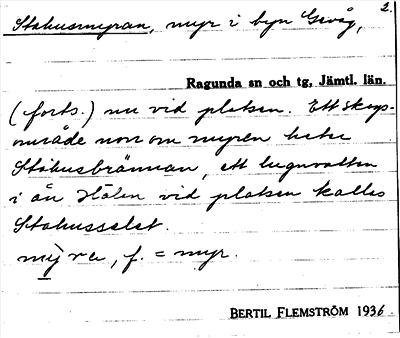 Stohusmyran, myr i byn Gevåg, 2.
Ragunda sn och tg, Jämtl. län.
(forts.) nu vid platsen. Ett skogs-
område norr om myren heter
Stohusbrännan, ett lugnvatten
i ån Hålen vid platsen kallas
Stohusselet.
myra, f. = myr.
BERTIL FLEMSTRÖM 1936.